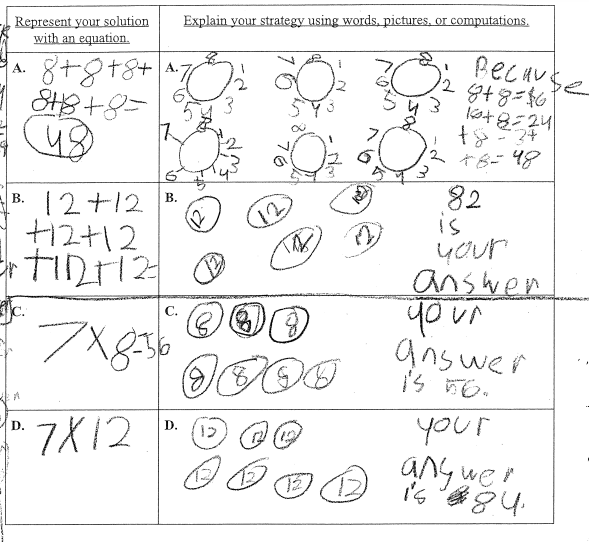 Represent your solution
with an equation.
Explain your strategy using words, pictures, or computations.
A.
8+8+8+
8+8+8=
48
A.
7 8 1 2 3 4 5 6
7 8 1 2 3 4 5 6
7 8 1 2 3 4 5 6
7 8 1 2 3 4 5 6
7 8 1 2 3 4 5 6
7 8 1 2 3 4 5 6
Because
8+8=16
16+8=24
+8=
+8=48
B.
12+12
+12+12
+12+12=
B.
12 12 12
12 12 12
82
is
your
answer
C.
7x8=56
C.
8 8 8
8 8 8 8
your
answer
is 56.
D.
7X12
D.
12 12 12
12 12 12 12
your
answer
is 84.